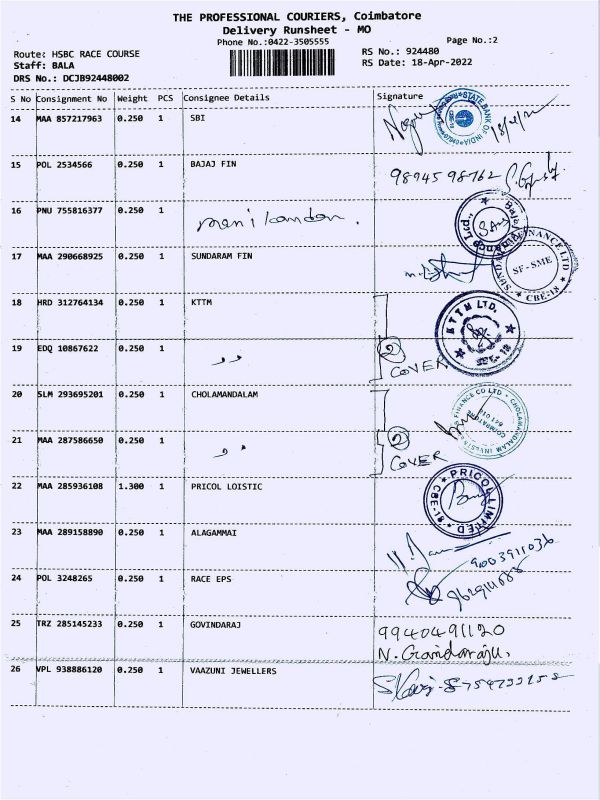 THE PROFESSIONAL COURIERS, Coimbatore
Delivery Runsheet - MO
Phone No.:0422-3505555
Page No.:2
Route: HSBC RACE COURSE
RS No.: 924480
Staff: BALA
RS Date: 18-Apr-2022
DRS No.: DCJB92448002
S No Consignment No Weight PCS Consignee Details Signature
14 MAA 857217963 0.250 1 SBI
STATE BANK OF INDIA
15 POL 2534566 0.250 1 BAJAJ FIN
9894598762
16 PNU 755816377 0.250 1 manikandan.
17 MAA 290668925 0.250 1 SUNDARAM FIN
SUNDARAM FINANCE LTD
SF-SME
CBE-18
18 HRD 312764134 0.250 1 KTTM
KTTM LTD.
CBE-18
19 EDQ 10867622 0.250 1 ,,
2
COVER
20 SLM 293695201 0.250 1 CHOLAMANDALAM
CHOLAMANDALAM INVESTS & FINANCE CO LTD
21 MAA 287586650 0.250 1 ,,
2
COVER
22 MAA 285936108 1.300 1 PRICOL LOISTIC
PRICOL LIMITED
CBE-18
23 MAA 289158890 0.250 1 ALAGAMMAI
9003911036
24 POL 3248265 0.250 1 RACE EPS
25 TRZ 285145233 0.250 1 GOVINDARAJ
9940491120
N. Govindaraju.
26 VPL 938886120 0.250 1 VAAZUNI JEWELLERS